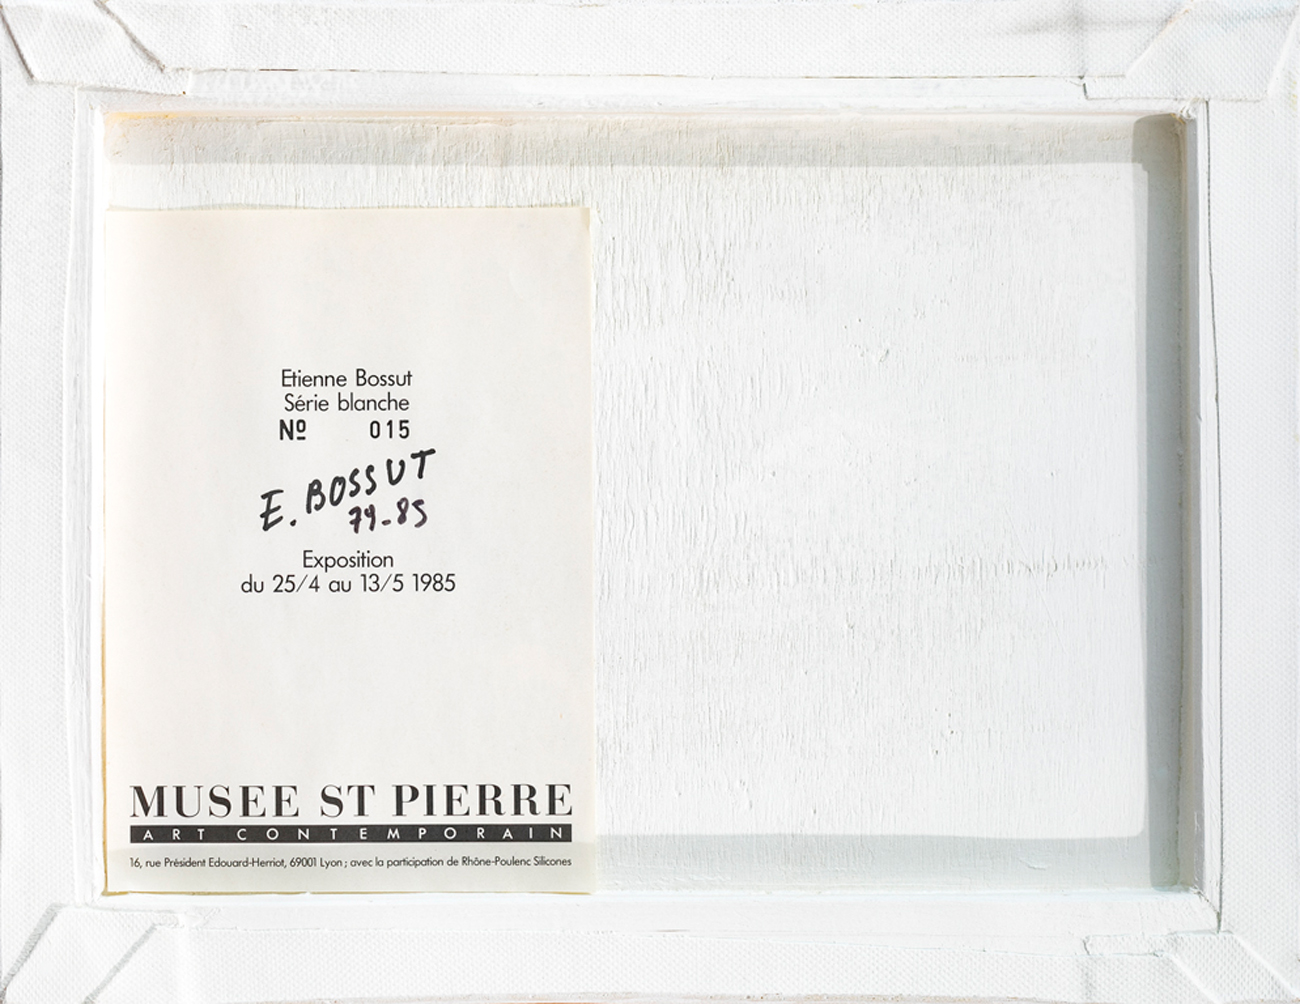 Etienne Bossut
Série blanche
Nº 015
E. BOSSUT
79-85
Exposition
du 25/4 au 13/5 1985
MUSEE ST PIERRE
ART CONTEMPORAIN
16, rue Président Edouard-Herriot, 69001 Lyon ; avec la participation de Rhône-Poulenc Silicones